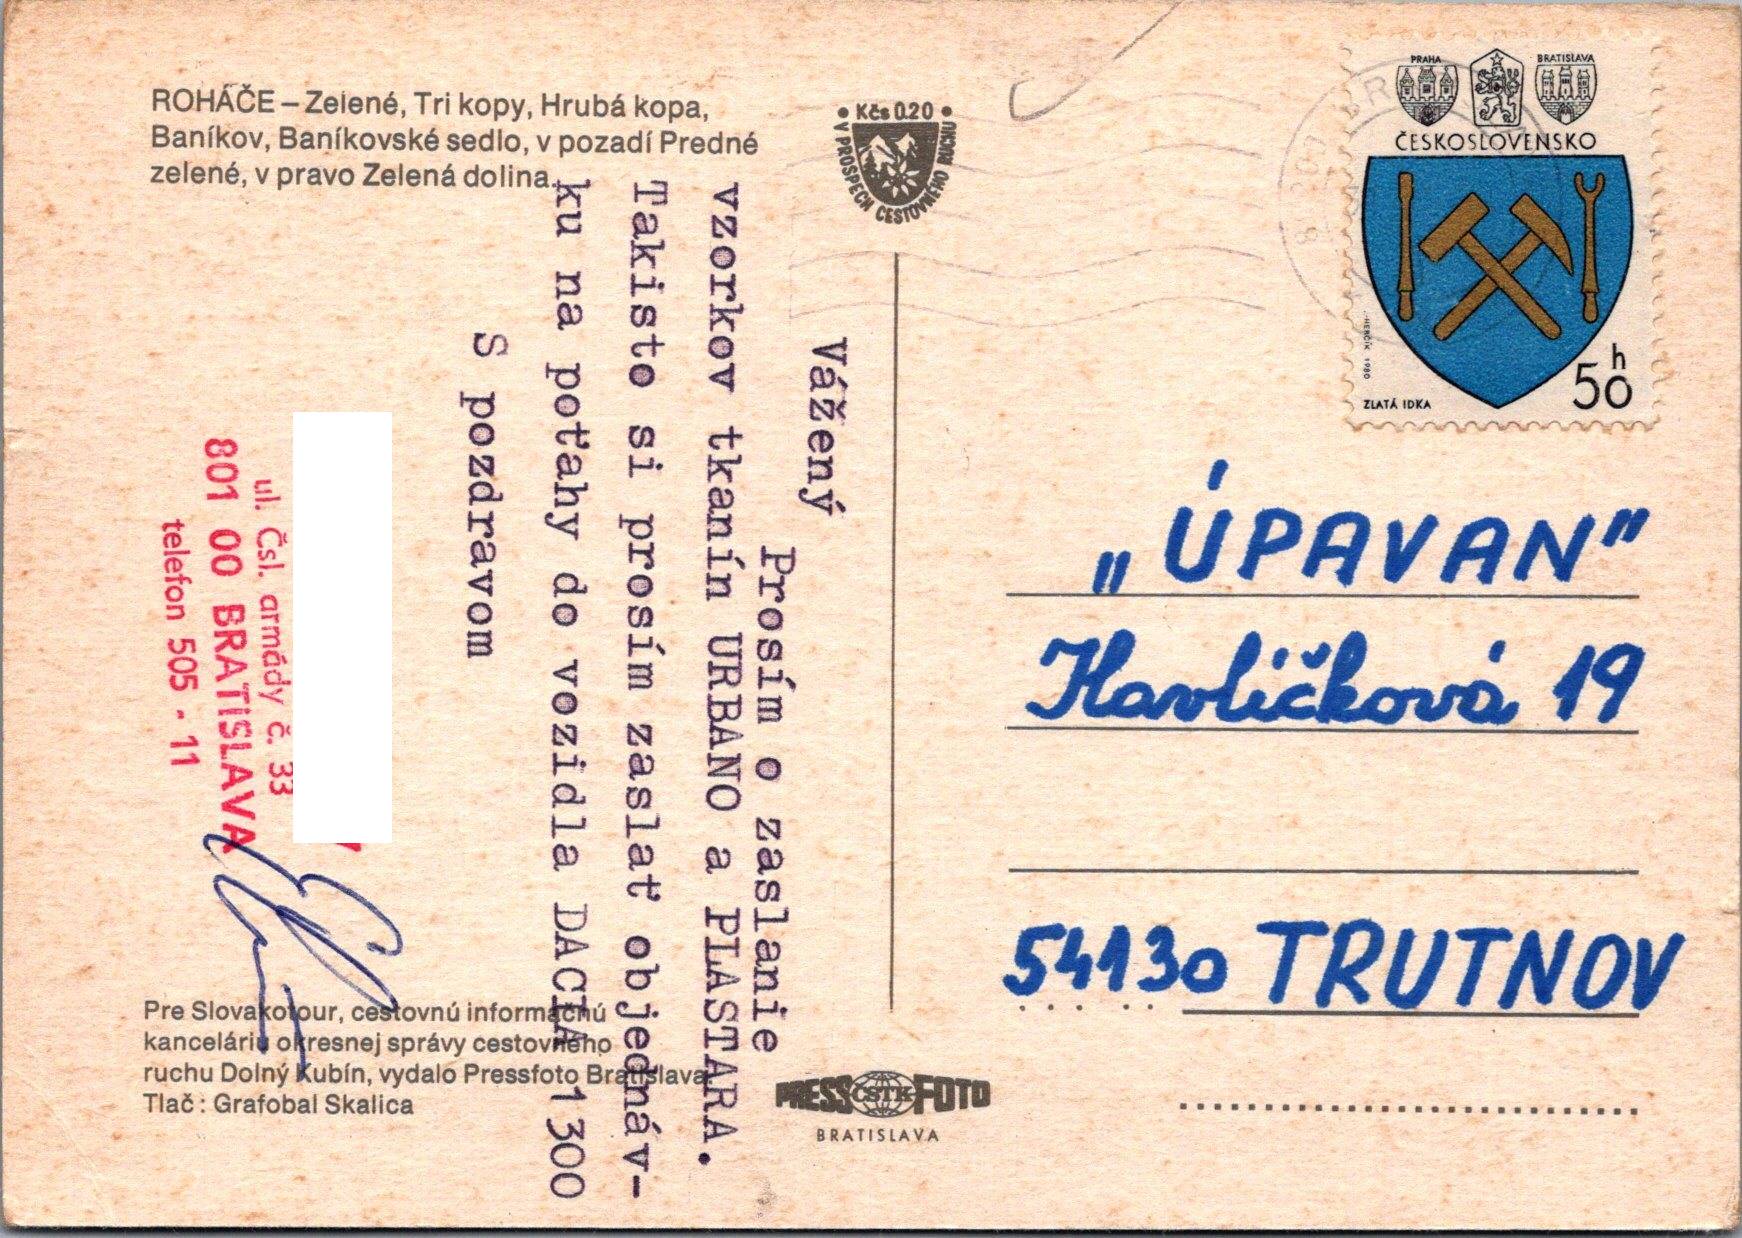 ROHÁČE – Zelené, Tri kopy, Hrubá kopa,
Baníkov, Baníkovské sedlo, v pozadí Predné
zelené, v pravo Zelená dolina.
• Kčs 0.20 •
V PROSPECH CESTOVNÉHO RUCHU
PRAHA
BRATISLAVA
ČESKOSLOVENSKO
HERČÍK 1980
ZLATÁ IDKA
50 h
Vážený
Prosím o zaslanie
vzorkov tkanín URBANO a PLASTARA.
Takisto si prosím zaslať objednáv-
ku na poťahy do vozidla DACIA 1300
S pozdravom
ul. Čsl. armády č. 33
801 00 BRATISLAVA
telefon 505 - 11
„ÚPAVAN"
Havlíčková 19
54130 TRUTNOV
Pre Slovakotour, cestovnú informačnú
kanceláriu okresnej správy cestovného
ruchu Dolný Kubín, vydalo Pressfoto Bratislava
Tlač: Grafobal Skalica
PRESS ČSTK FOTO
BRATISLAVA